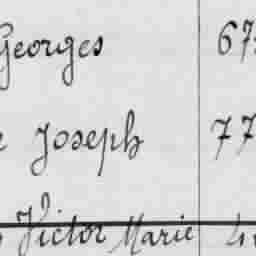 Georges 67
Joseph 77
Victor Marie